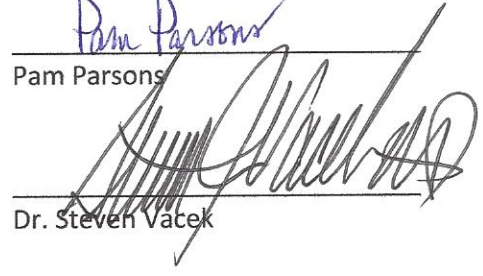 Pam Parsons
Pam Parsons
Dr. Steven Vacek